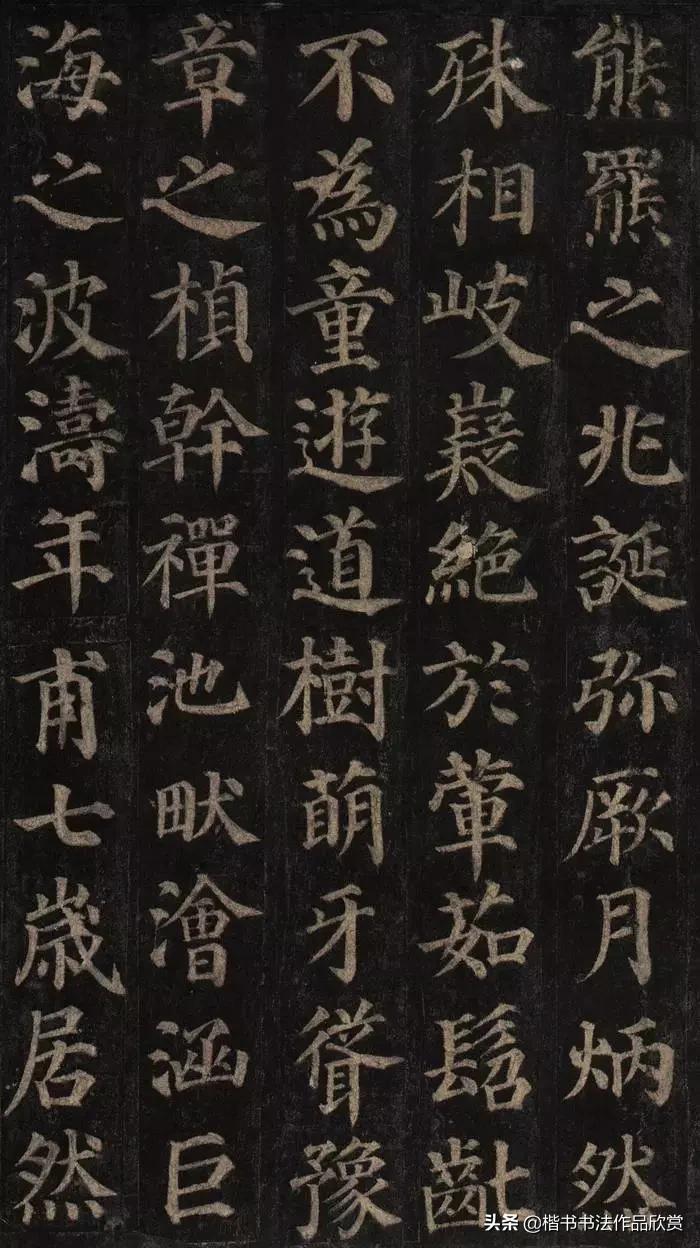 熊羆之兆誕弥厥月炳然
殊相岐嶷絶於葷茹髫齔
不為童遊道樹萌牙聳豫
章之楨幹禪池畎澮涵巨
海之波濤年甫七歳居然
头条 @楷书书法作品欣赏